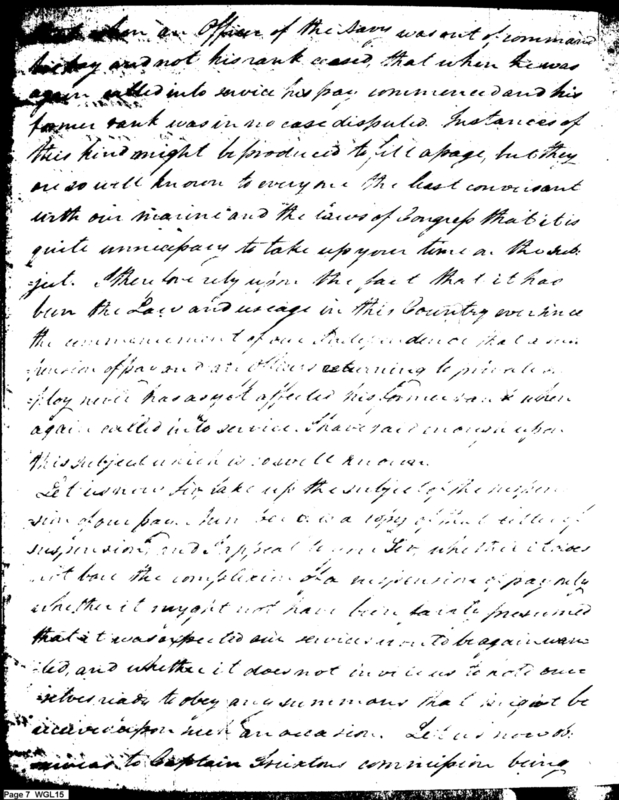 when an Officer of the Navy was out of command
his pay and not his rank ceased, that when he was
again called into service his pay commenced and his
former rank was in no case disputed. Instances of
this kind might be produced to fill a page, but they
are so well known to every one the least conversant
with our marine and the Laws of Congress that it is
quite unnecessary to take up your time on the sub-
-ject. I therefore rely upon the fact that it has
been the Law and useage in this Country ever since
the commencement of our Independence that a sus
-pension of pay and an officers returning to private em
-ploy never has as yet affected his former rank when
again called into service. I have said enough upon
this subject which is so well known.
Let us now Sir take up the subject of the suspen
sion of our pay. is a copy of that letter of
suspension and I appeal to you Sir, whether it does
not bare the complexion of a suspension of pay only
whether it might not have been fairly presumed
that it was expected our services were to be again wan
-ted, and whether it does not invite us to hold our
-selves ready to obey any summons that might be
received upon such an occasion. Let us now
to Captain Truxtons commission being
Page 7 WGL15